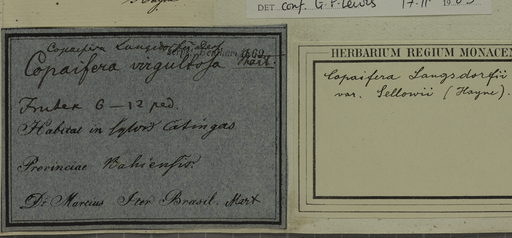 Hayne
DET. conf. G.P. Lewis 17-II 19
Copaifera Langsdorffii Desf.
Copaifera virgultosa Mart.
Frutex 6 — 12 ped.
Habitat in sylvis Catingas
Provinciae Bahiensis.
Dr Martius Iter Brasil. Mart
HERBARIUM REGIUM MONACEN
Copaifera Langsdorfii
var. Sellowii (Hayne).